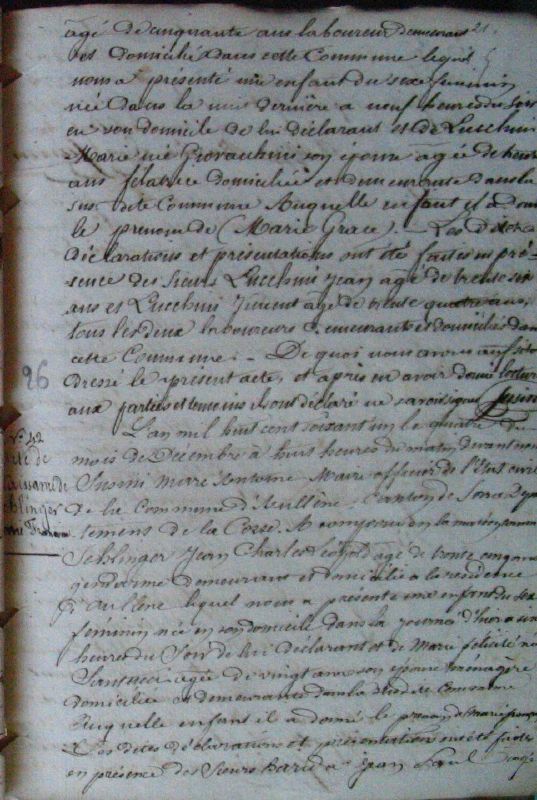 agé de cinquante ans laboureur demeurant 21.
et domicilié dans cette Commune lequel
nous a présenté une enfant du sexe féminin
née dans la nuit dernière a neuf heures du soir
en son domicile de lui déclarant et de Lucchini
Marie née Giovacchini son épouse agée de trente
ans filatrice domiciliée et demeurante dans la
sus dite Commune Auquelle enfant il a donné
le prénom de (Marie Grace). Les dites
déclarations et présentations ont été faites en pré-
sence des Sieurs Lucchini Jean agé de trente six
ans et Lucchini Vincent agé de trente quatre ans,
tous les deux laboureurs demeurants et domiciliés dans
cette Commune. De quoi nous avons aussitot
dressé le présent acte, et après en avoir donné lecture
aux parties et temoins ils ont déclaré ne savoir signer
96
N° 42
de
naissance de
Sehlinger
Marie
L'an mil huit cent soixante un le quatre du
mois de Décembre à huit heures du matin devant nous
Antoine Maire officier de l'Etat civil
de la Commune d'Aullène Canton de Serra Dépar-
tement de la Corse. A comparu en la maison commune
Sehlinger Jean Charles Léopold agé de trente cinq ans
gendarme demeurant et domicilié a la residence
d'Aullène lequel nous a présenté une enfant du sexe
féminin née en son domicile dans la journée d'hier a six
heures du Soir de lui déclarant et de Marie félicité née
agée de vingt ans son épouse ménagère
domiciliée et demeurante dans la dite Commune
Auquelle enfant il a donné le prénom de Marie françoise
Les dites déclarations et présentation ont été faites
en présence des Sieurs Jean Paul